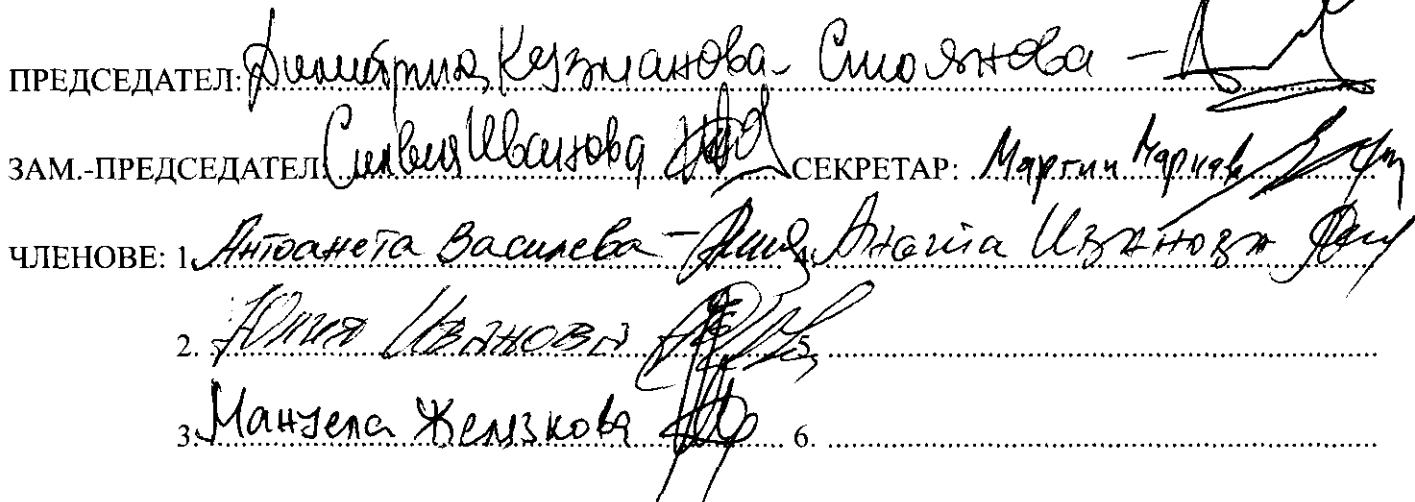 ПРЕДСЕДАТЕЛ: Димитрия Кузманова - Стоянова -
ЗАМ.-ПРЕДСЕДАТЕЛ: Силвия Иванова СЕКРЕТАР: Мартин
ЧЛЕНОВЕ: 1. Антоанета Василева - 4. Иванова
2. Юлия Иванова 5.
3. Мануела Желязкова 6.